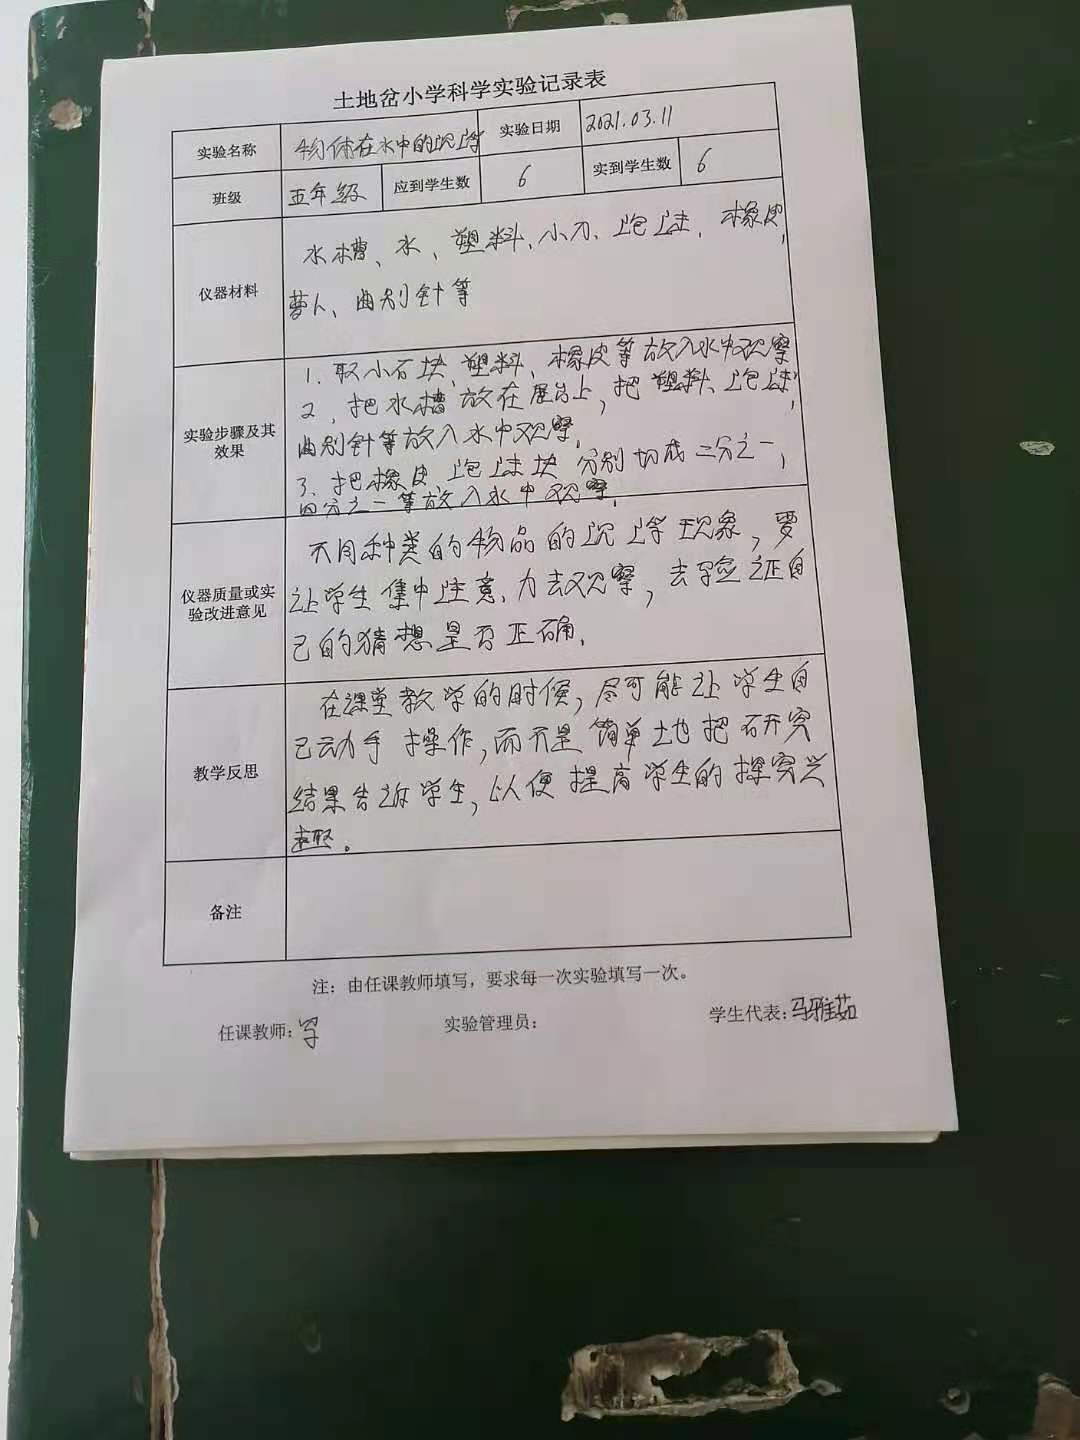 土地岔小学科学实验记录表
实验名称 物体在水中的沉浮 实验日期 2021.03.11
班级 五年级 应到学生数 6 实到学生数 6
仪器材料
水槽、水、塑料、小刀、泡沫、橡皮、
萝卜、曲别针等
实验步骤及其
效果
1. 取小石块、塑料、橡皮等放入水中观察
2、把水槽放在展台上，把塑料、泡沫，
曲别针等放入水中观察。
3、把橡皮、泡沫块分别切成二分之一，
四分之一等放入水中观察。
仪器质量或实
验改进意见
不同种类的物品的沉浮现象，要
让学生集中注意力去观察，去验证自
己的猜想是否正确。
教学反思
在课堂教学的时候，尽可能让学生自
己动手操作，而不是简单地把研究
结果告诉学生，以便提高学生的探究兴
趣。
备注
注：由任课教师填写，要求每一次实验填写一次。
任课教师： 实验管理员： 学生代表：马雅茹